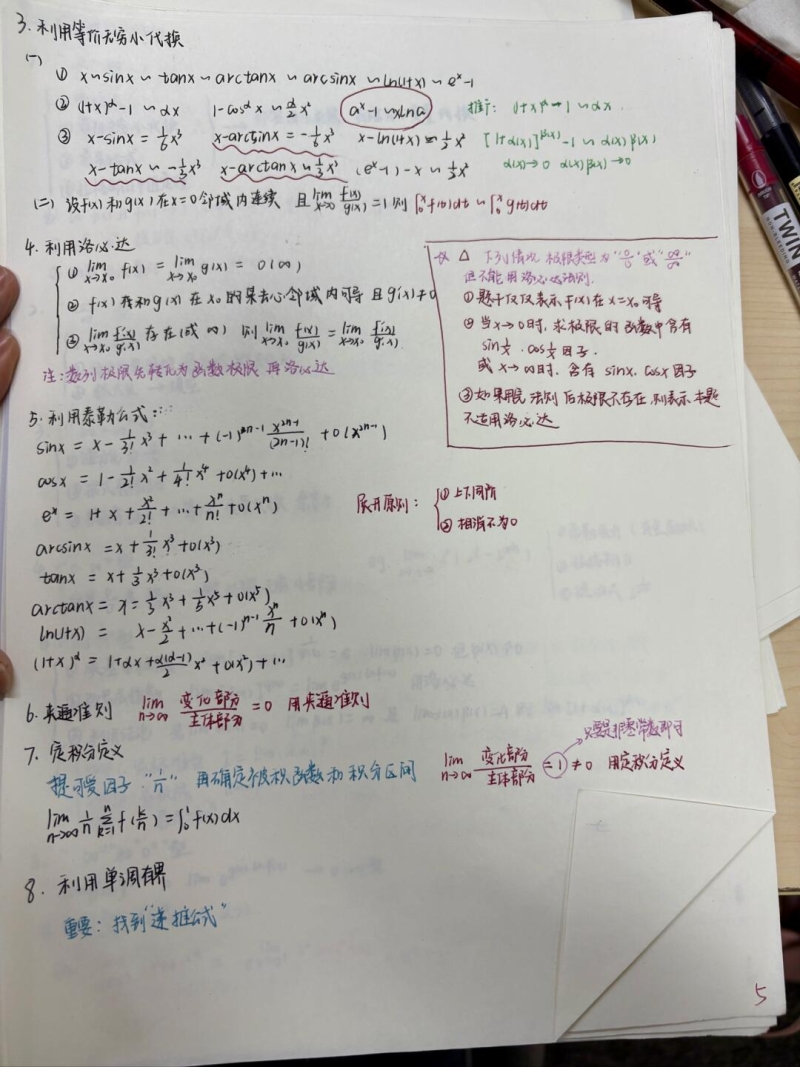 3. 利用等价无穷小代换
(一)
① x~sinx~tanx~arctanx~arcsinx~ln(1+x)~e^x-1
② (1+x)^α-1~αx  1-cos^αx~α/2 x²  a^x-1~xlna  推广: (1+x)^α-1~αx.
③ x-sinx=1/6x³  x-arcsinx=-1/6x³  x-ln(1+x)=1/2x²  [1+α(x)]^β(x)-1~α(x)β(x)
x-tanx~-1/3x³  x-arctanx~1/3x³  (e^x-1)-x~1/2x²  α(x)→0 α(x)β(x)→0
(二) 设f(x)和g(x)在x=0邻域内连续 且lim x→0 f(x)/g(x)=1则∫₀^x f(t)dt~∫₀^x g(t)dt
4. 利用洛必达
① lim x→x₀ f(x)=lim x→x₀ g(x)=0(∞)
② f(x)和g(x)在x₀的某去心邻域内可导且g'(x)≠0
③ lim x→x₀ f'(x)/g'(x)存在(或∞) 则lim x→x₀ f(x)/g(x)=lim x→x₀ f'(x)/g'(x)
注:数列极限先转化为函数极限 再洛必达
△ 下列情况 极限类型为"0/0"或"∞/∞"
但不能用洛必达法则.
①题干仅仅表示f(x)在x=x₀可导
②当x→0时,求极限的函数中含有
sin1/x.cos1/x因子.
或x→∞时,含有sinx.cosx因子
③如果用完法则后极限不存在,则表示本题
不适用洛必达
5. 利用泰勒公式:
sinx=x-1/3!x³+…+(-1)^{2n-1} x^{2n-1}/(2n-1)!+o(x^{2n-1})
cosx=1-1/2!x²+1/4!x⁴+o(x⁴)+…
e^x=1+x+x²/2!+…+x^n/n!+o(x^n)
展开原则: ①上下同阶
②相消不为0
arcsinx=x+1/3!x³+o(x³)
tanx=x+1/3x³+o(x³)
arctanx=x=1/3x³+1/5x⁵+o(x⁵)
ln(1+x)=x-x²/2+…+(-1)^{n-1} x^n/n+o(x^n)
(1+x)^α=1+αx+α(α-1)/2 x²+o(x²)+…
6. 夹逼准则 lim n→∞ 变化部分/主体部分=0 用夹逼准则
7. 定积分定义
只要是非零常数即可
lim n→∞ 变化部分/主体部分=1≠0 用定积分定义
提可爱因子"1/n" 再确定被积函数和积分区间
lim n→∞ 1/n Σ_{k=1}^n f(k/n)=∫₀¹f(x)dx
8. 利用单调有界
重要:找到"递推公式"
5